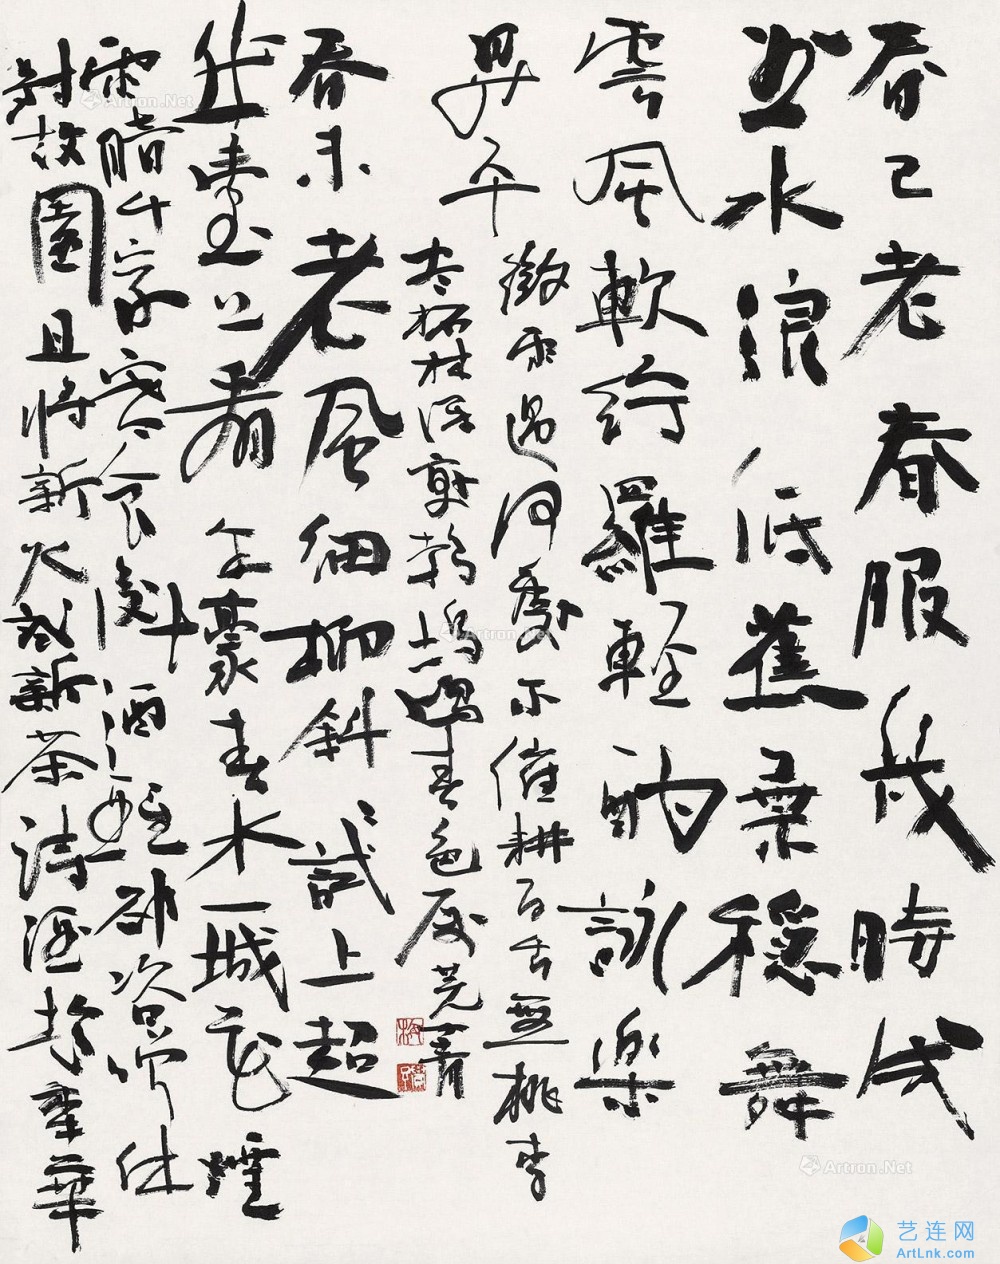 春已老春服幾時成
曲水浪低蕉葉穩舞
雩風軟紵羅輕酣詠樂
昇平
微雨過何處不催耕百舌無桃李
尽柘林深
春色属芜菁
春未老風細柳斜試上超
然臺上看半豪春水一城花煙
雨暗千家寒食後酒醒卻咨嗟休
對故園且將新火試新茶詩酒趁年華
Artron.Net
Artron.Net
Artron.Net
艺连网
ArtLnk.com